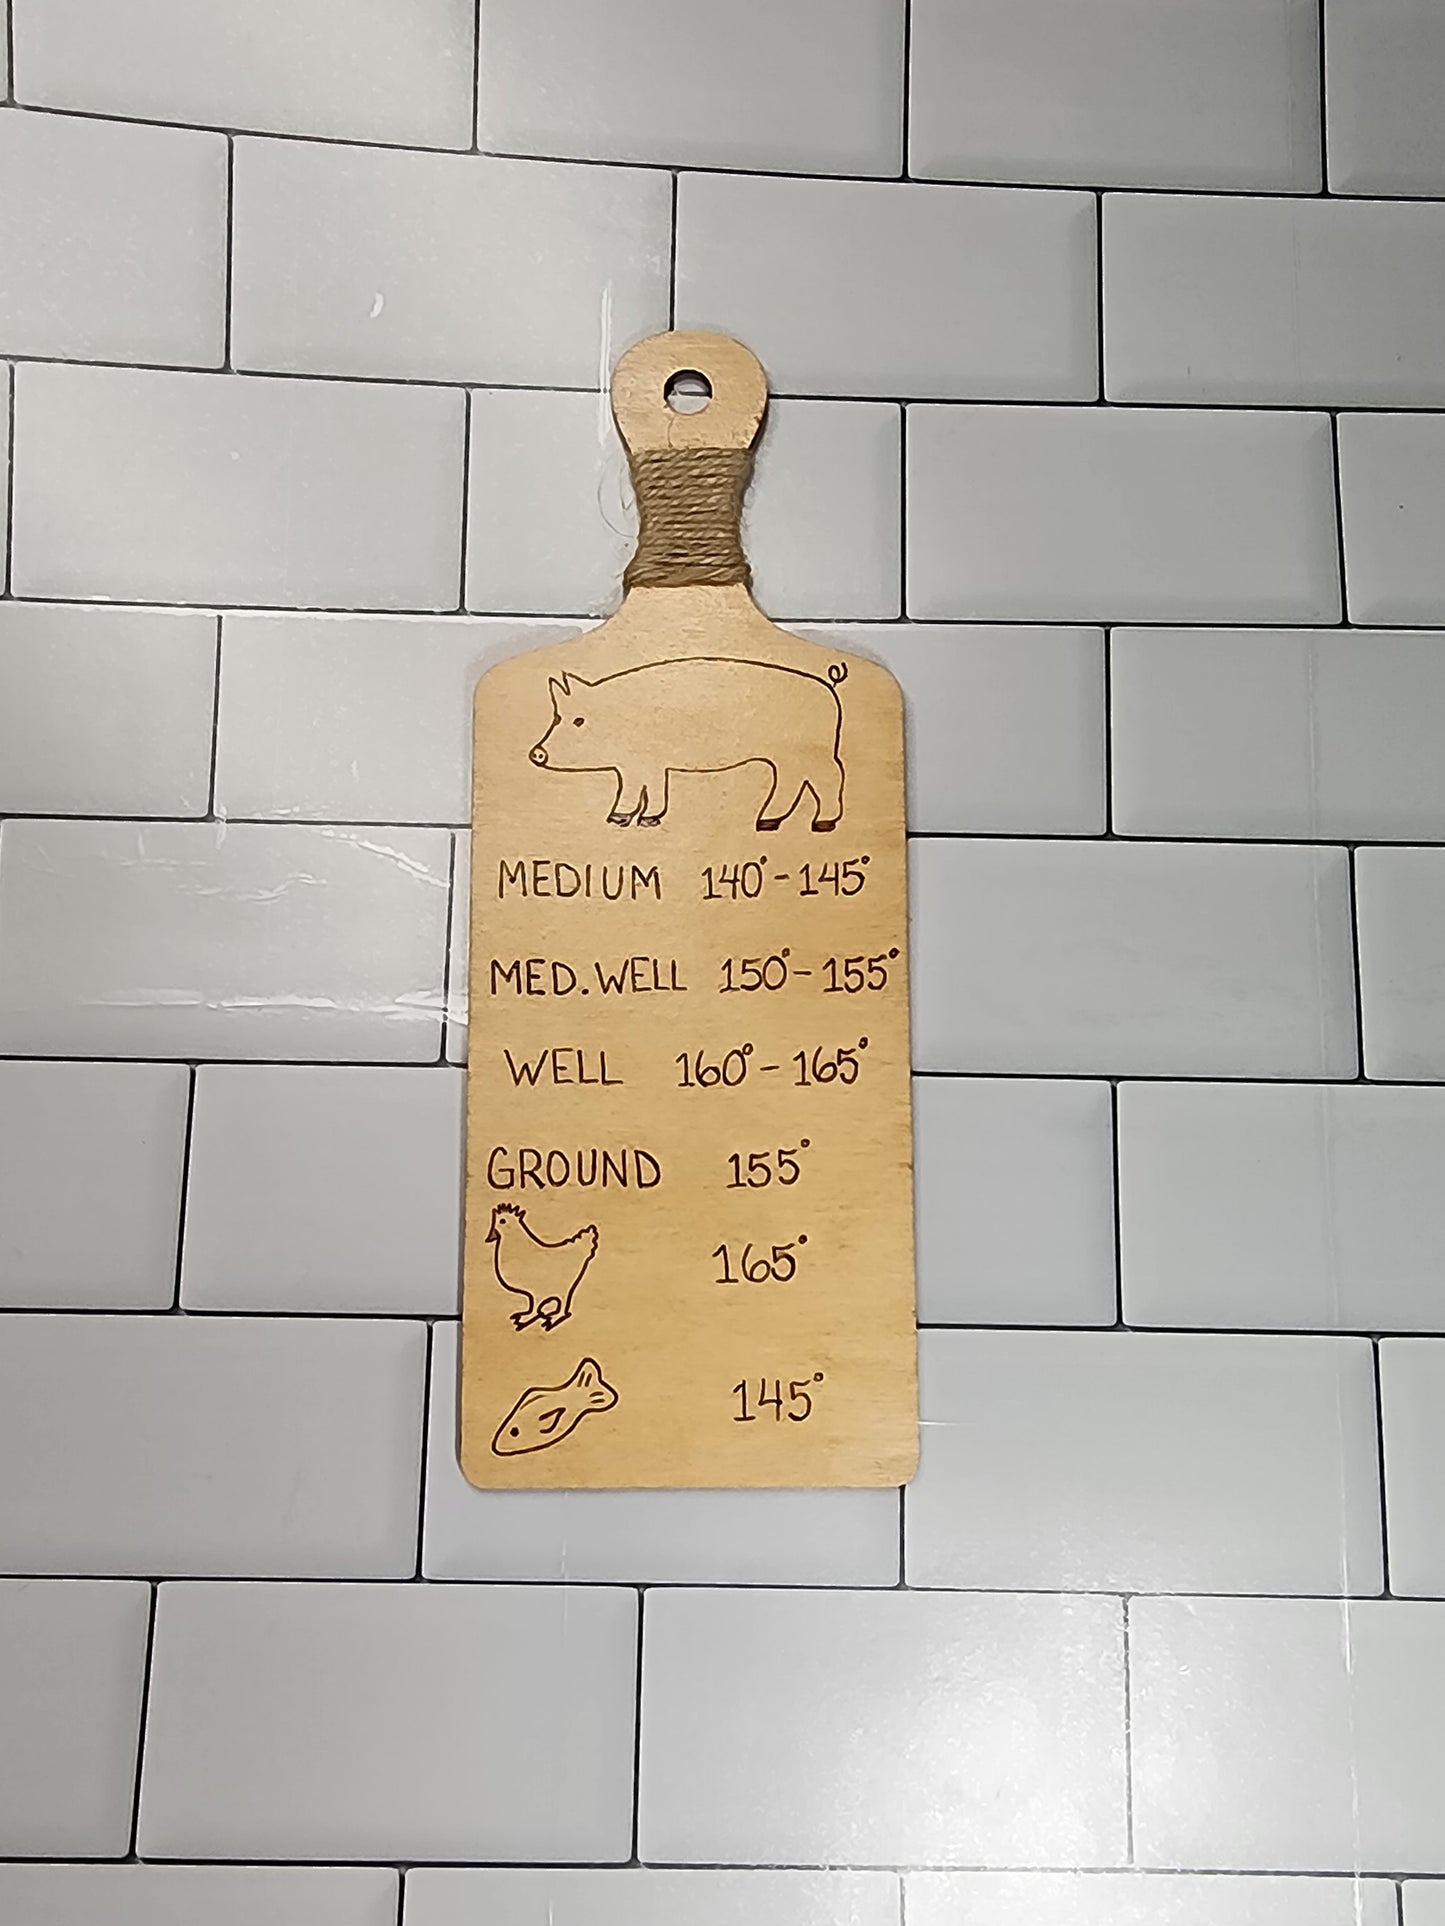 MEDIUM 140°-145°
MED.WELL 150°-155°
WELL 160°-165°
GROUND 155°
165°
145°